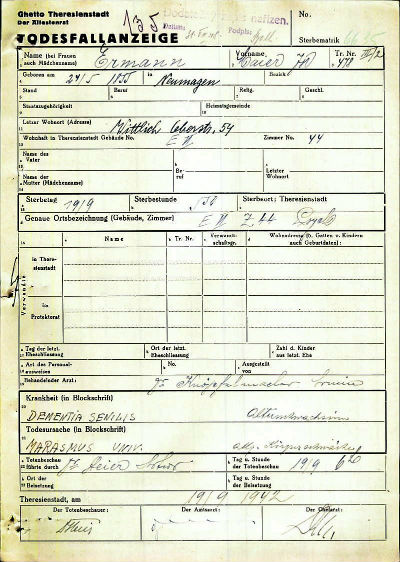 Ghetto Theresienstadt
Der Ältestenrat
135
No.
TODESFALLANZEIGE
Sterbematrik
Name (bei Frauen auch Mädchenname) Ermann
Vorname Maier
Tr. Nr.
Geboren am 24/5 1855 in Neumagen Bezirk
Stand Beruf Relig. Geschl.
Staatszugehörigkeit Heimatsgemeinde
Letzter Wohnort (Adresse) Wittlich Oberstr. 54
Wohnhaft in Theresienstadt Gebäude No. E VI Zimmer No. 44
Name des Vater
Name der Mutter (Mädchenname)
Beruf
Letzter Wohnort
Sterbetag 19/9 Sterbestunde Sterbeort: Theresienstadt
Genaue Ortsbezeichnung (Gebäude, Zimmer) E VI Z 44
Name Tr. Nr. Verwandtschaftsgr. Wohnadresse (b. Gatten u. Kindern auch Geburtdaten):
Verwandte
in Theresienstadt
im Protektorat
Tag der letzt. Eheschliessung
Ort der letzt. Eheschliessung
Zahl d. Kinder aus letzt. Ehe
Art des Personalausweises
No.
Ausgestellt von
Behandelnder Arzt:
Krankheit (in Blockschrift)
DEMENTIA SENILIS Altersschwachsinn
Todesursache (in Blockschrift)
MARASMUS UNIV. allg. Körperschwäche
Totenbeschau führte durch
Tag u. Stunde der Totenbeschau 19/9 6 20
Ort der Beisetzung
Tag u. Stunde der Beisetzung
Theresienstadt, am 19/9 1942
Der Totenbeschauer: Der Amtsarzt: Der Chefarzt: